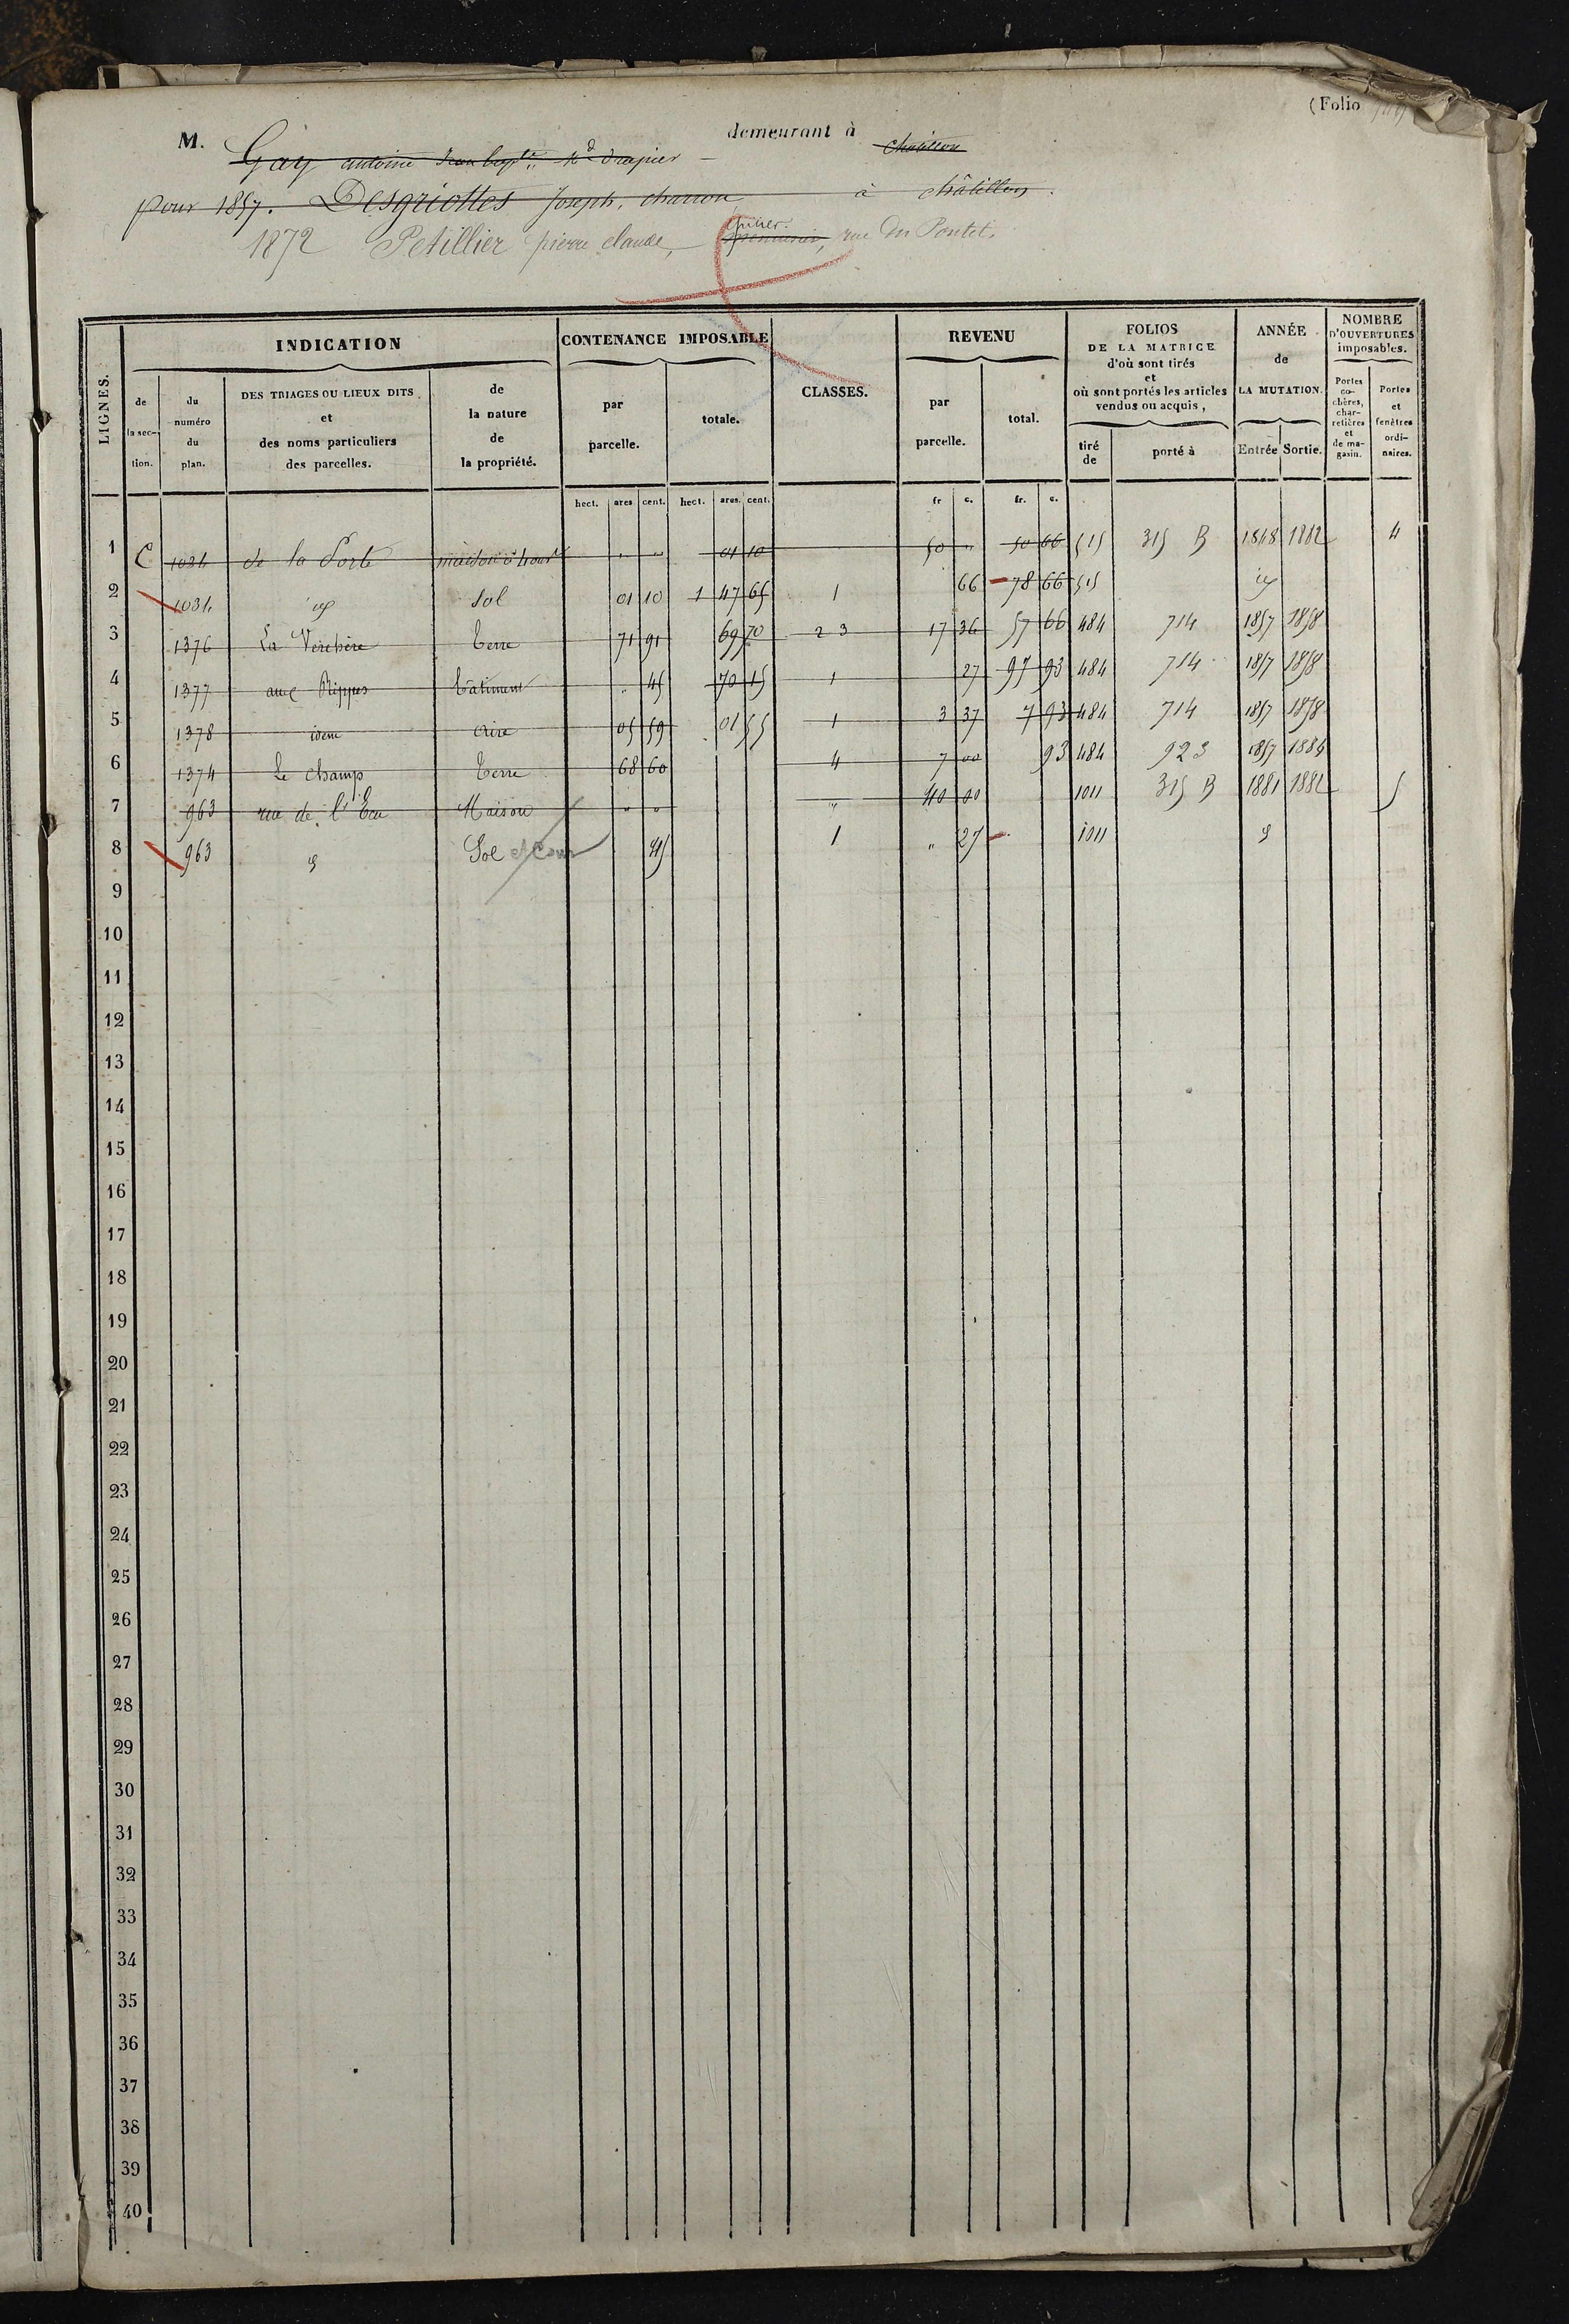 (Folio
M. Gay antoine Jean bapte. Md drapier demeurant à Chatillon
pour 1857. Desgriottes Joseph, charron à châtillon.
épicier.
1872 Petillier pierre claude, rue du Pontet.
LIGNES.
INDICATION
CONTENANCE IMPOSABLE
CLASSES.
REVENU
FOLIOS DE LA MATRICE d'où sont tirés et où sont portés les articles vendus ou acquis,
ANNÉE de LA MUTATION.
NOMBRE D'OUVERTURES imposables.
de la section.
du numéro du plan.
DES TRIAGES OU LIEUX DITS et des noms particuliers des parcelles.
de la nature de la propriété.
par parcelle.
totale.
par parcelle.
total.
tiré de
porté à
Entrée
Sortie.
Portes cochères, charretières et de magasin.
Portes et fenêtres ordinaires.
hect. ares cent. hect. ares. cent. fr c. fr. c.
1 C 1034 de la Porte maison " " 01 10 50 " 50 66 515 315 B 1848 1882 4
2 1034 id Sol 01 10 1 47 65 1 66 78 66 515 id
3 1376 La Verchère Terre 71 91 69 70 2 3 17 36 57 66 484 714 1857 1858
4 1377 aux Rippes Bâtiment " 45 70 15 1 27 97 93 484 714 1857 1858
5 1378 idem aire 05 59 01 55 1 3 37 7 93 484 714 1857 1858
6 1374 Le champ Terre 68 60 4 7 00 93 484 923 1857 1884
7 963 rue de l'Ecu Maison " " " 40 00 1011 315 B 1881 1882 5
8 963 d Sol et Cour 45 1 " 27 1011 d
9
10
11
12
13
14
15
16
17
18
19
20
21
22
23
24
25
26
27
28
29
30
31
32
33
34
35
36
37
38
39
40